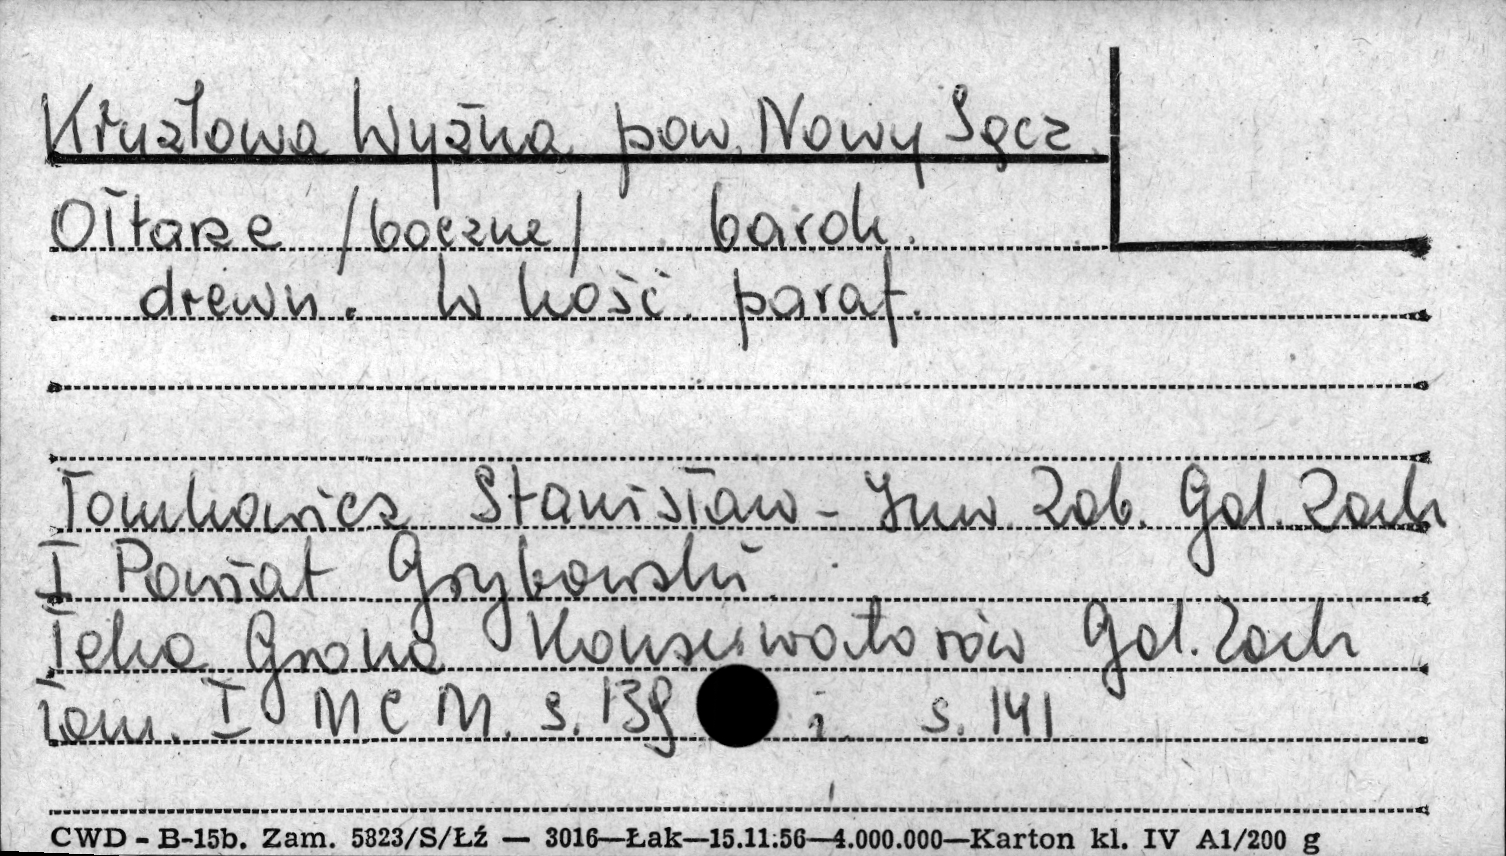 Krużlowa Wyżna pow. Nowy Sącz
Ołtarze /boczne/ barok.
drewn. w kość. paraf.
Tomkowicz Stanisław - Inw. Zab. Gal. Zach
I Powiat Grybowski.
Teka Grona Konserwatorów Gal. Zach
Tom. I MCM. s. 139 i s. 141
CWD - B-15b. Zam. 5823/S/Łź — 3016—Łak—15.11:56—4.000.000—Karton kl. IV A1/200 g